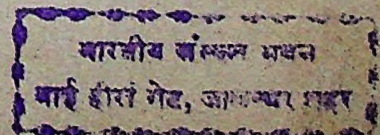 भारतीय संस्कृत भवन
माई हीरां गेट, जालन्धर शहर